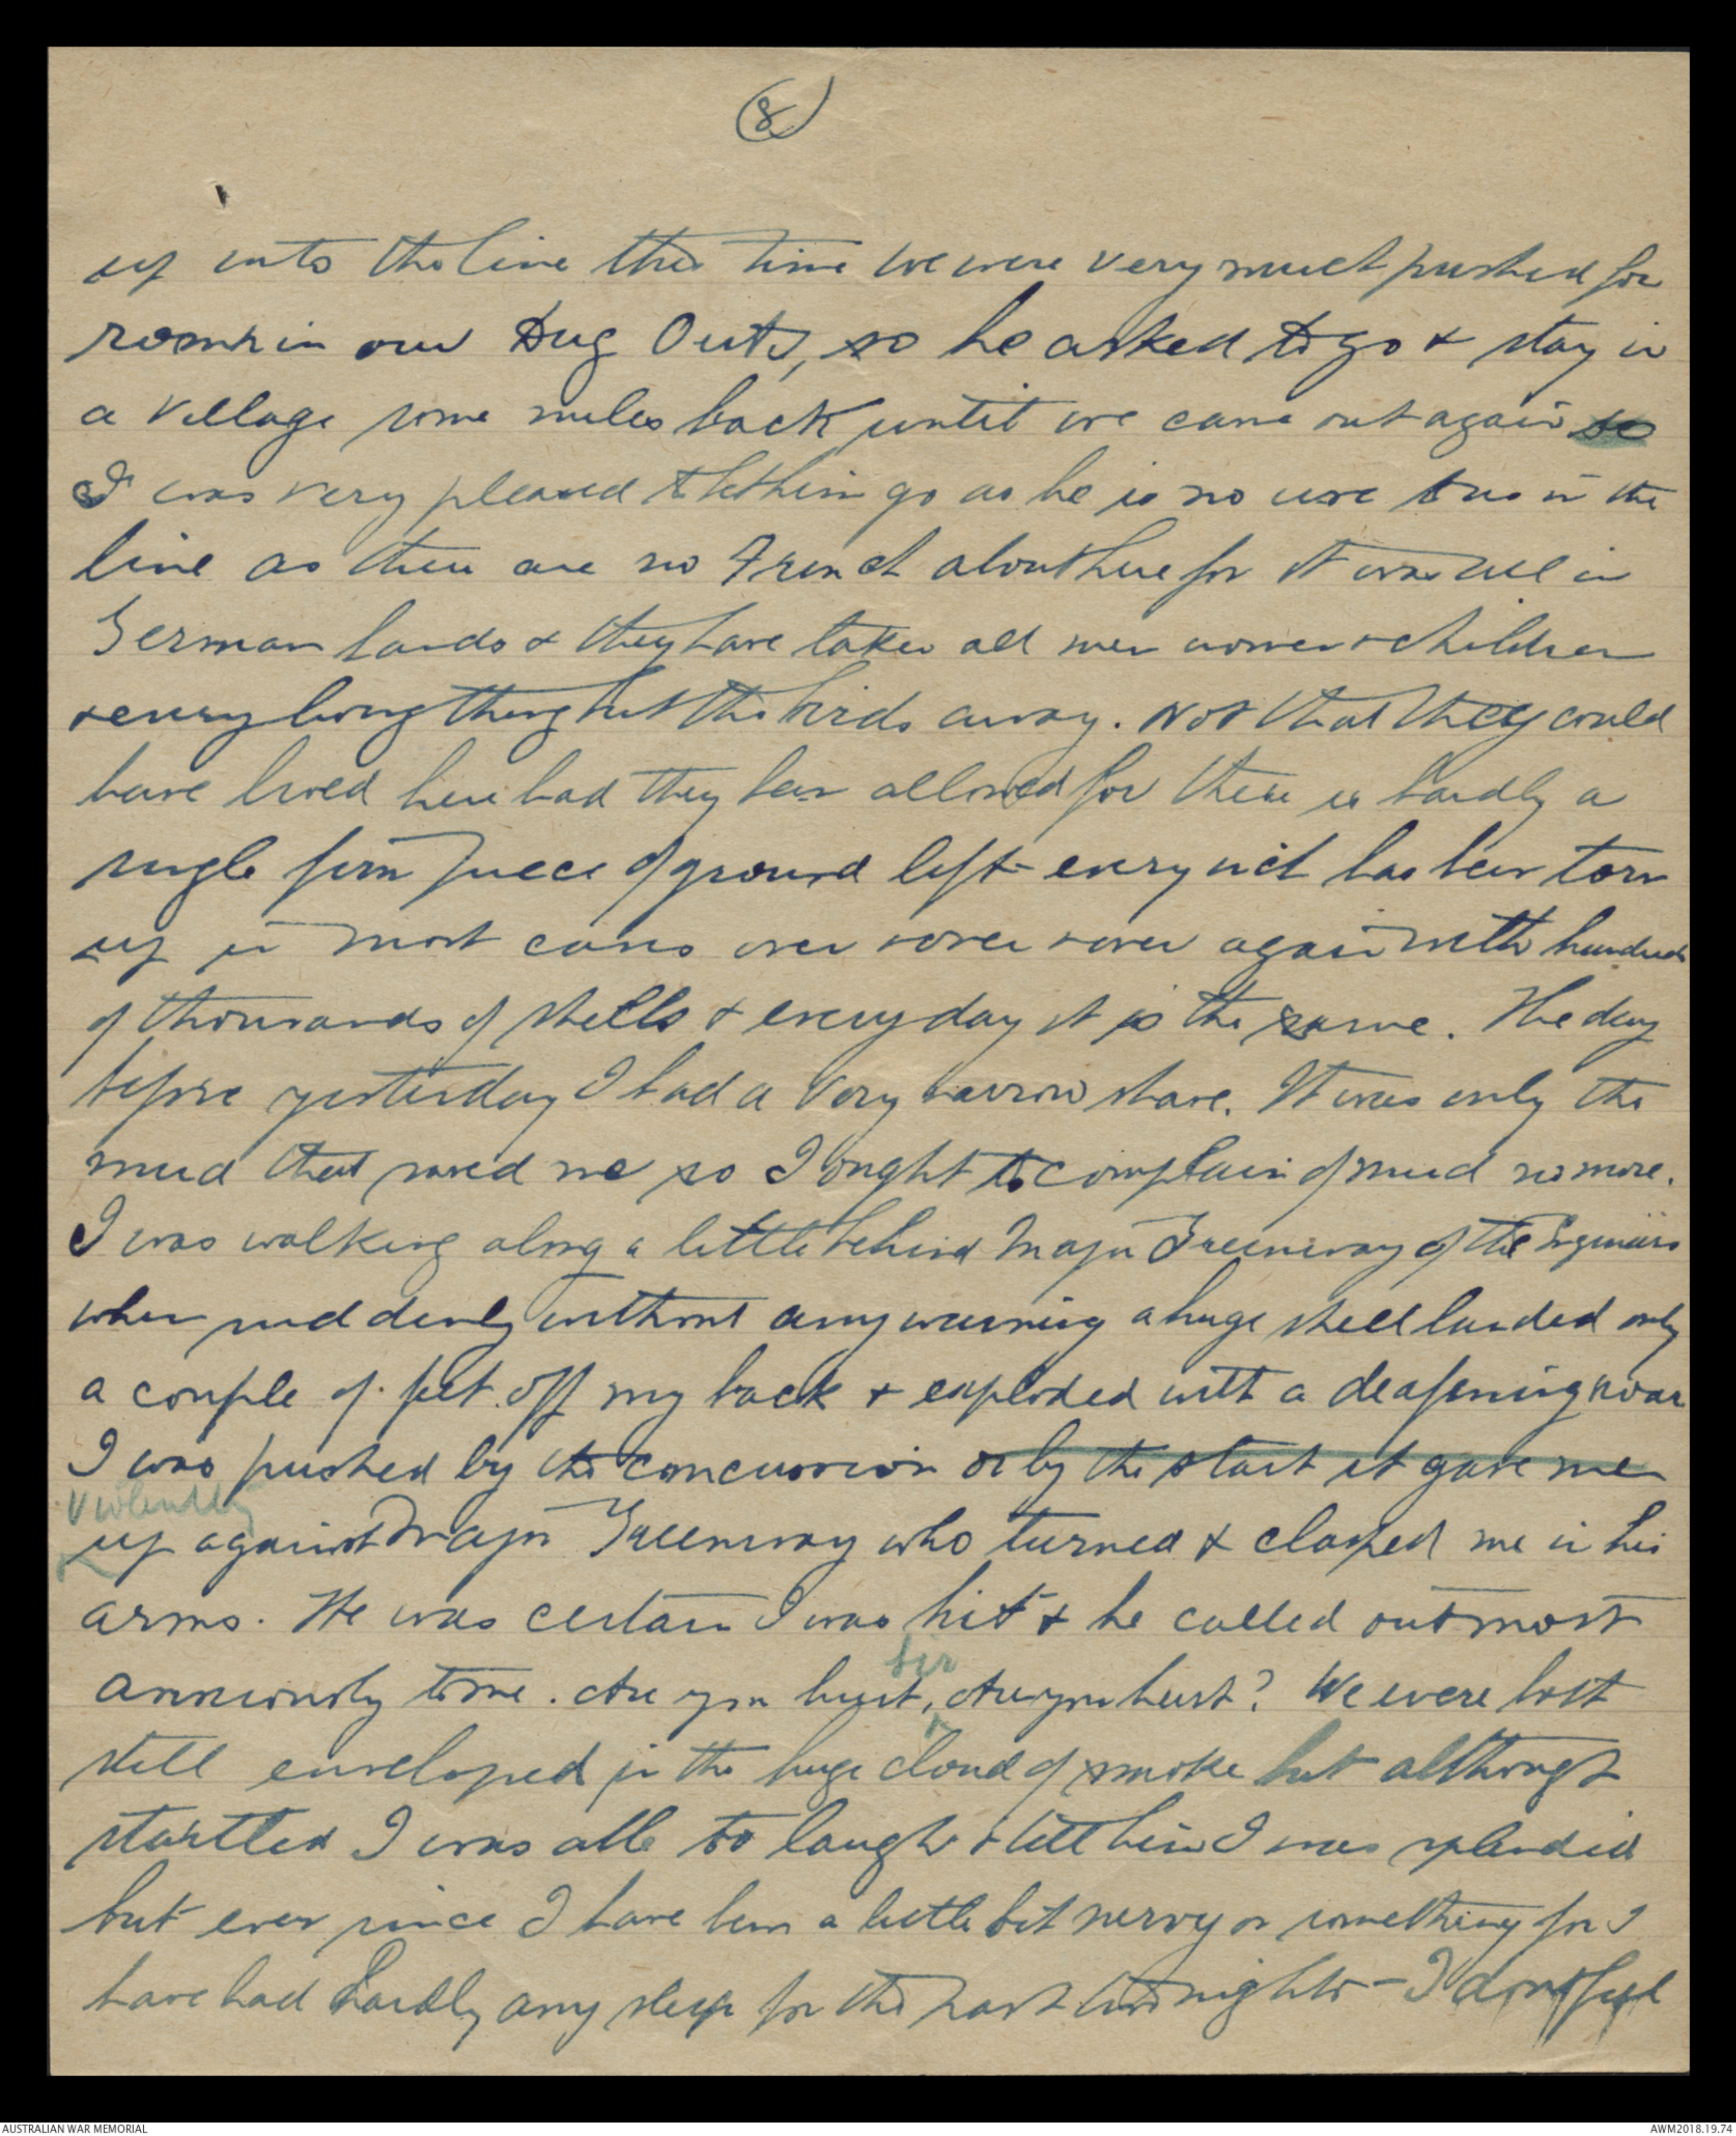 (8)
up into the line this time we were very much pushed for
room in our Dug Outs, so he asked to go & stay in
a village some miles back until we came out again so
I was very pleased to let him go as he is no use to us in the
line as there are no French about here for it was all in
German hands & they have taken all men women & children
& every living thing but the birds away. Not that they could
have lived here had they been allowed for there is hardly a
single firm piece of ground left - every inch has been torn
up in most cases over & over & over again with hundreds
of thousands of shells & every day it is the same. The day
before yesterday I had a very narrow shave. It was only the
mud that saved me so I ought to complain of mud no more.
I was walking along a little behind Major Greenway of the Engineers
when suddenly without any warning a huge shell landed only
a couple of feet off my back & exploded with a deafening roar
I was pushed by the concussion or by the start it gave me
violently
up against Major Greenway who turned & clasped me in his
arms. He was certain I was hit & he called out most
sir
anxiously to me. Are you hurt, Are you hurt? We were both
still enveloped in the huge cloud of smoke but although
startled I was able to laugh & tell him I was splendid
but ever since I have been a little bit nervy or something for I
have had hardly any sleep for the past two nights - I dont feel
AUSTRALIAN WAR MEMORIAL
AWM2018.19.74